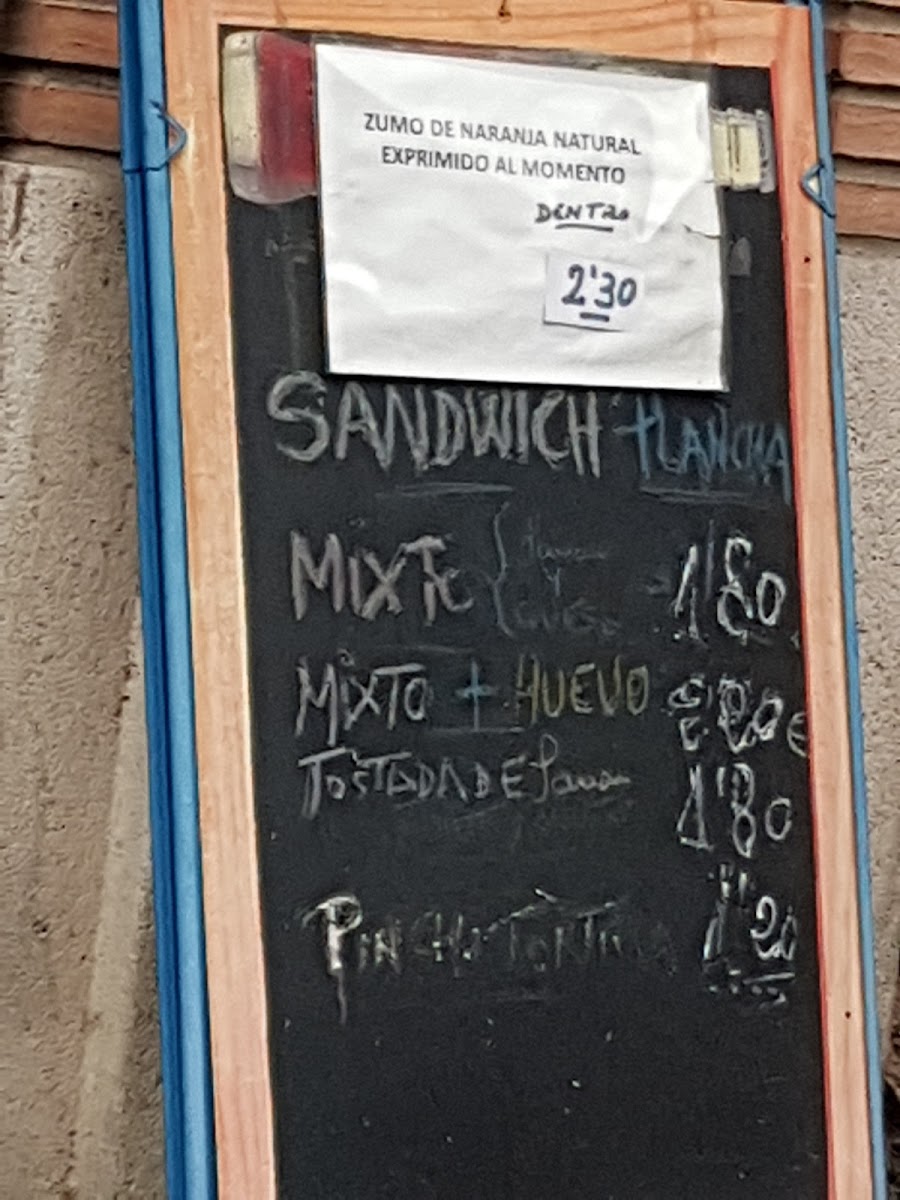 ZUMO DE NARANJA NATURAL
EXPRIMIDO AL MOMENTO
DENTRO
2'30
SANDWICH PLANCHA
MIXTO { y 1'80
MIXTO + HUEVO €
TOSTADA DE 1'80
PINCHO TORTILLA 1'20